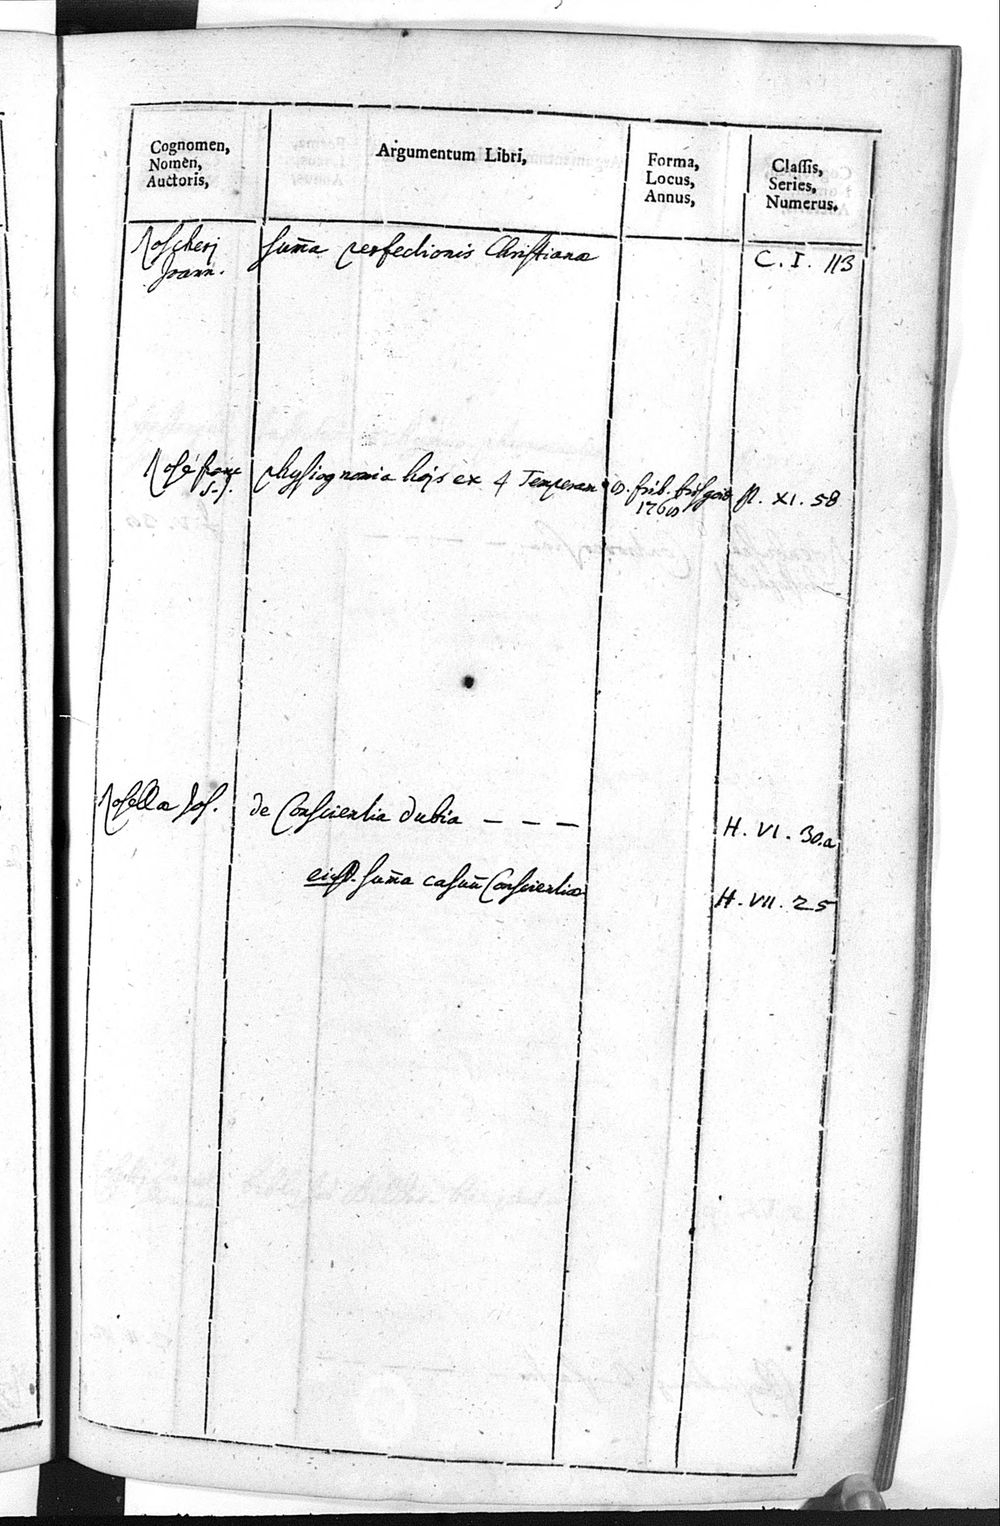 Cognomen,
Nomen,
Auctoris,
Argumentum Libri,
Forma,
Locus,
Annus,
Classis,
Series,
Numerus.
Roscheri
Joann.
Sum̄a perfectionis Christianæ
C. I. 113
Rosé franc
S. J.
physiognomia hoīs ex 4 Temperam
8. frib. brisgoiæ
1768
P. XI. 58
Rosella Jos.
de Conscientia dubia - - -
H. VI. 30.a
eiusd. Sum̄a casuū Conscientiæ
H. VII. 25